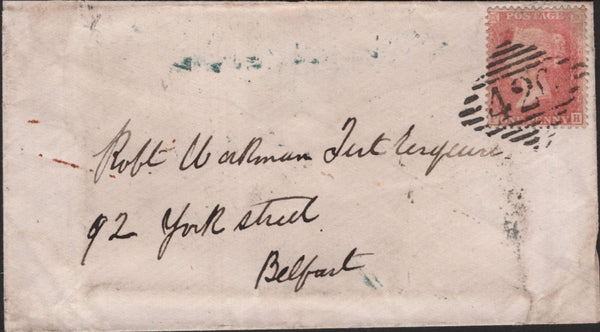 POSTAGE
PENNY
H
42
Robt Workman Esquire
92 York street
Belfast